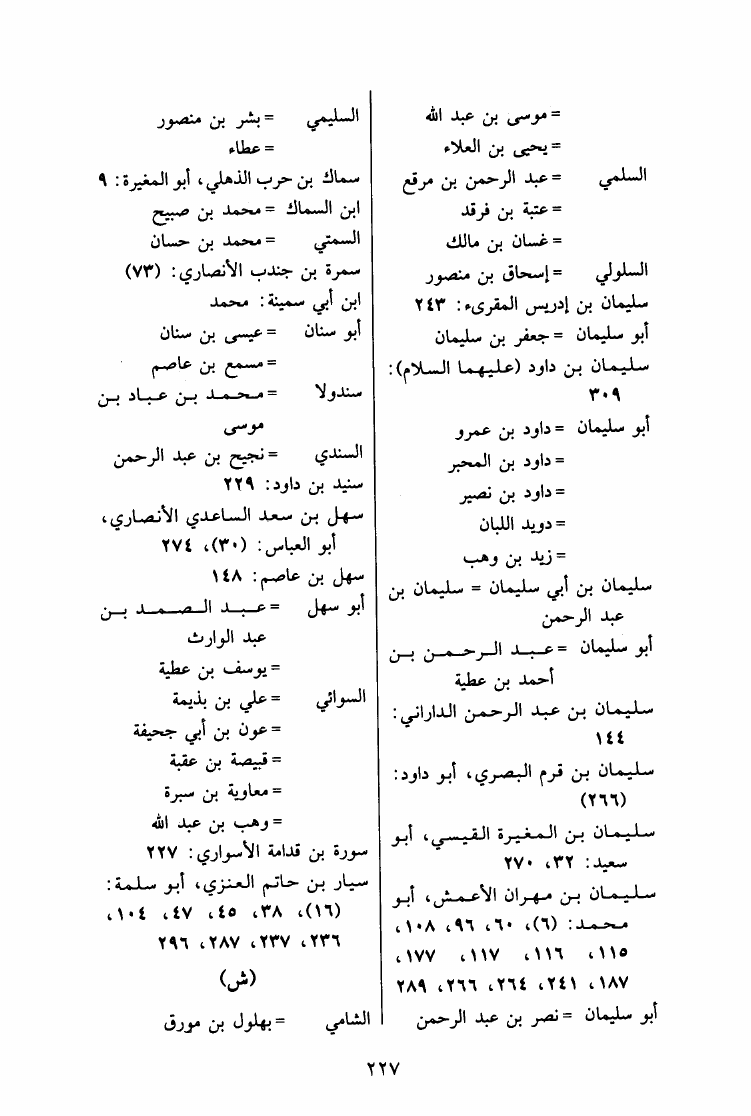 = موسى بن عبد الله
= يحيى بن العلاء
السلمي = عبد الرحمن بن مرقع
= عتبة بن فرقد
= غسان بن مالك
السلولي = إسحاق بن منصور
سليمان بن إدريس المقرىء: ٢٤٣
أبو سليمان = جعفر بن سليمان
سليمان بن داود (عليهما السلام):
٣٠٩
أبو سليمان = داود بن عمرو
= داود بن المحبر
= داود بن نصير
= دويد اللبان
= زيد بن وهب
سليمان بن أبي سليمان = سليمان بن
عبد الرحمن
أبو سليمان = عبد الرحمن بن
أحمد بن عطية
سليمان بن عبد الرحمن الداراني:
١٤٤
سليمان بن قرم البصري، أبو داود:
(٢٦٦)
سليمان بن المغيرة القيسي، أبو
سعيد: ٣٢، ٢٧٠
سليمان بن مهران الأعمش، أبو
محمد: (٦)، ٦٠، ٩٦، ١٠٨،
١١٥، ١١٦، ١١٧، ١٧٧،
١٨٧، ٢٤١، ٢٦٤، ٢٦٦، ٢٨٩
أبو سليمان = نصر بن عبد الرحمن
السليمي = بشر بن منصور
= عطاء
سماك بن حرب الذهلي، أبو المغيرة: ٩
ابن السماك = محمد بن صبيح
السمتي = محمد بن حسان
سمرة بن جندب الأنصاري: (٧٣)
ابن أبي سمينة: محمد
أبو سنان = عيسى بن سنان
= مسمع بن عاصم
سندولا = محمد بن عباد بن
موسى
السندي = نجيح بن عبد الرحمن
سنيد بن داود: ٢٢٩
سهل بن سعد الساعدي الأنصاري،
أبو العباس: (٣٠)، ٢٧٤
سهل بن عاصم: ١٤٨
أبو سهل = عبد الصمد بن
عبد الوارث
= يوسف بن عطية
السوائي = علي بن بذيمة
= عون بن أبي جحيفة
= قبيصة بن عقبة
= معاوية بن سبرة
= وهب بن عبد الله
سورة بن قدامة الأسواري: ٢٢٧
سيار بن حاتم العنزي، أبو سلمة:
(١٦)، ٣٨، ٤٥، ٤٧، ١٠٤،
٢٣٦، ٢٣٧، ٢٨٧، ٢٩٦
(ش)
الشامي = بهلول بن مورق
٢٢٧